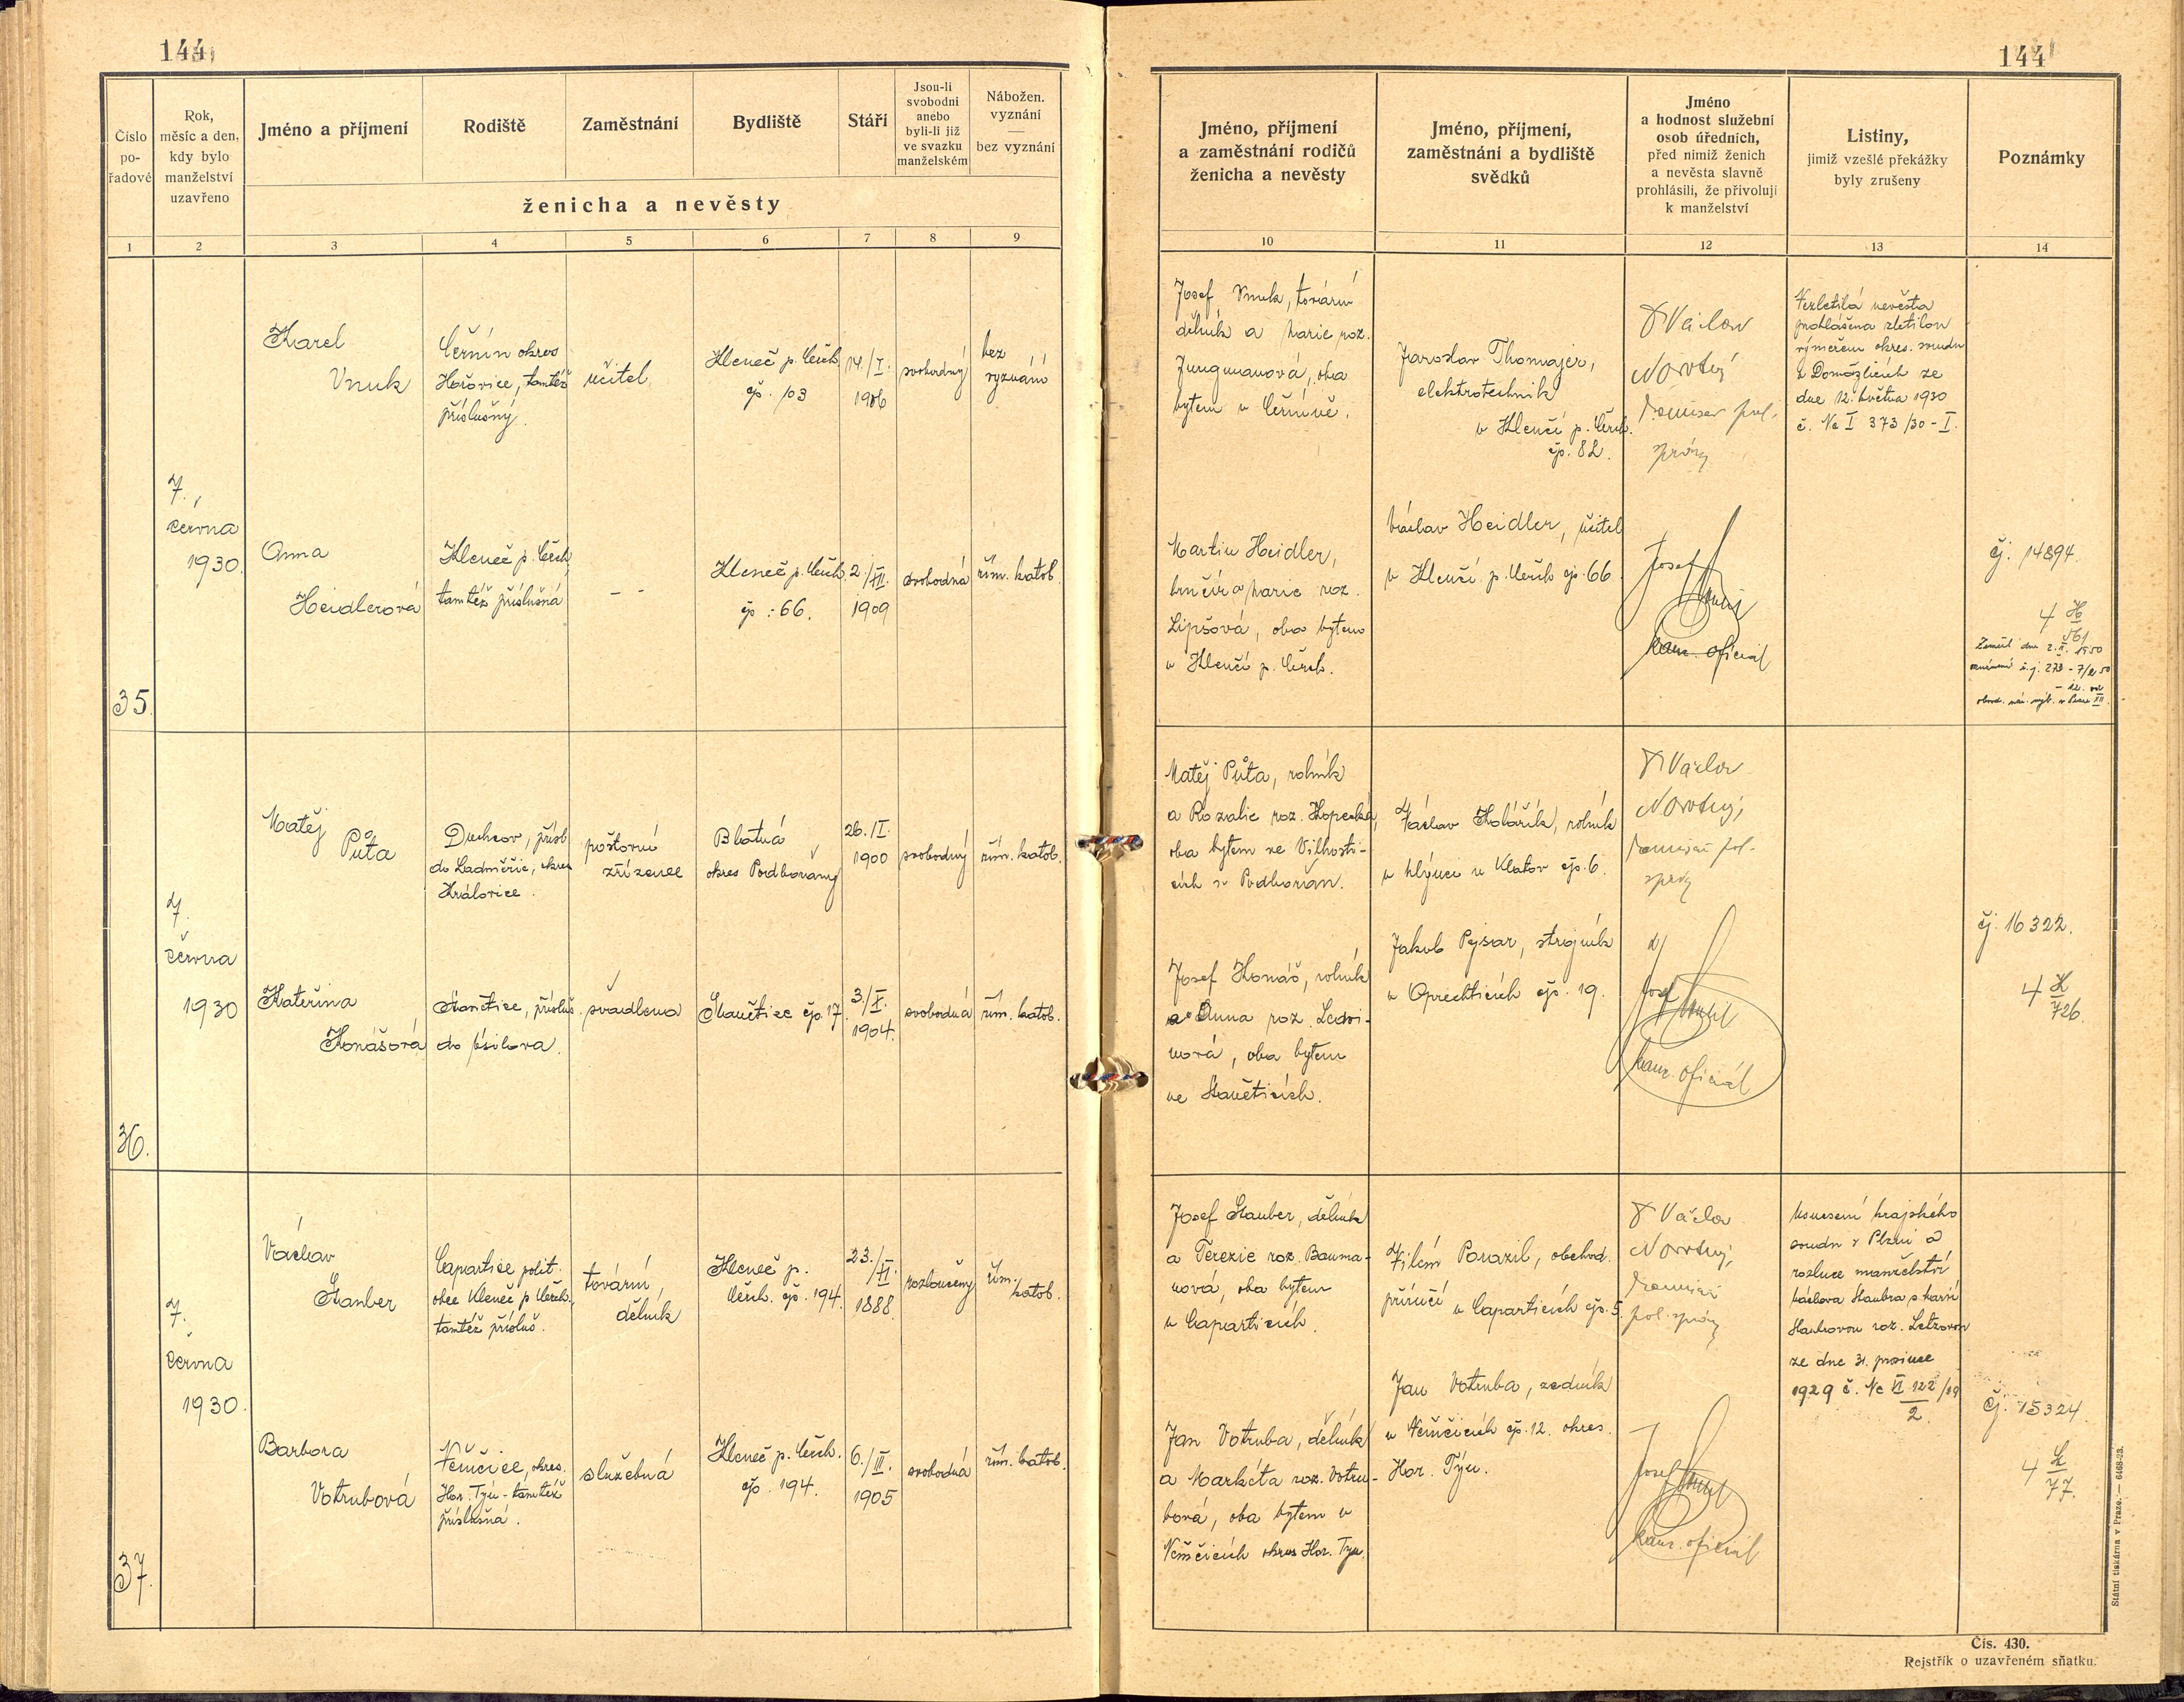 144
144
Číslo
po-
řadové
Rok,
měsíc a den,
kdy bylo
manželství
uzavřeno
Jméno a příjmení
Rodiště
Zaměstnání
Bydliště
Stáří
Jsou-li
svobodni
anebo
byli-li již
ve svazku
manželském
Nábožen.
vyznání
—
bez vyznání
ženicha a nevěsty
1
2
3
4
5
6
7
8
9
Jméno, příjmení
a zaměstnání rodičů
ženicha a nevěsty
Jméno, příjmení,
zaměstnání a bydliště
svědků
Jméno
a hodnost služební
osob úředních,
před nimiž ženich
a nevěsta slavně
prohlásili, že přivolují
k manželství
Listiny,
jimiž vzešlé překážky
byly zrušeny
Poznámky
10
11
12
13
14
35.
7.
června
1930.
Karel
Vnuk
Černín okres
Hořovice, tamtéž
příslušný.
učitel
Kleneč p. Čerch.
čp. 103
14./I.
1906
svobodný
bez
vyznání
Anna
Heidlerová
Kleneč p. Čerch,
tamtéž příslušná
- -
Kleneč p. Čerch.
čp. 66.
2./XII.
1909
svobodná
řím. katol.
Josef Vnuk, tovární
dělník a Marie roz.
Jungmanová, oba
bytem v Černíně.
Martin Heidler,
hrnčíř a Marie roz.
Lipšová, oba bytem
v Klenčí p. Čerch.
Jaroslav Thomajer,
elektrotechnik
v Klenčí p. Čerch.
čp. 82.
Václav Heidler, učitel
v Klenčí p. Čerch čp. 66
Václav
Novotný
komisař pol.
správy
Josef
kanc. oficiál
Nezletilá nevěsta
prohlášena zletilou
výměrem okres. soudu
v Domažlicích ze
dne 12. května 1930
č. Nc I 373/30-I.
čj. 14894.
4 H
561
Zemřel dne 2. II. 1950
oznámení č.j. 273 - 7/2 50
obvod. nár. výb. v Praze XII
36.
7.
června
1930
Matěj
Půta
Duchcov, přísl.
do Ladměřic, okres
Královice.
poštovní
zřízenec
Blatná
okres Podbořany
26./I.
1900
svobodný
řím. katol.
Kateřina
Konášová
Stanětice, přísluš.
do Úsilova.
švadlena
Stanětice čp. 17
3./X.
1904.
svobodná
řím. katol.
Matěj Půta, rolník
a Rozalie roz. Kopecká,
oba bytem ve Vilhosti-
cích u Podbořan.
Josef Konáš, rolník
a Anna roz. Ledvi-
nová, oba bytem
ve Staněticích.
Václav Kolářík, rolník
v Mlýnci u Klatov čp. 6.
Jakub Pejsar, strojník
v Oprechticích čp. 19.
Václav
Novotný,
komisař pol.
správy
Josef
kanc. oficiál
čj. 16322.
4 K
726.
37.
7.
června
1930.
Václav
Stauber
Capartice polit.
obec Kleneč p Čerch.,
tamtéž přísluš.
tovární
dělník
Kleneč p.
Čerch. čp. 194.
23./XI.
1888
rozloučený
řím.
katol.
Barbora
Votrubová
Němčice, okres.
Hor. Týn - tamtéž
příslušná.
služebná
Kleneč p. Čerch.
čp. 194.
6./III.
1905
svobodná
řím. katol.
Josef Stauber, dělník
a Terezie roz. Bauma-
nová, oba bytem
v Caparticích.
Jan Votruba, dělník
a Markéta roz. Votru-
bová, oba bytem v
Němčicích okres Hor. Týn.
Vilém Parazil, obchod.
příručí v Caparticích čp. 5.
Jan Votruba, zedník
v Němčicích čp. 12. okres.
Hor. Týn.
Václav
Novotný,
komisař
pol. správy
Josef
kanc. oficiál
Usnesení krajského
soudu v Plzni o
rozluce manželství
Václava Staubra s Marií
Staubrovou roz. Letzovou
ze dne 31. prosince
1929 č. Nc VI 122/19
2.
čj. 15324.
4 K
77.
Státní tiskárna v Praze. — 6468-23.
Čís. 430.
Rejstřík o uzavřeném sňatku.